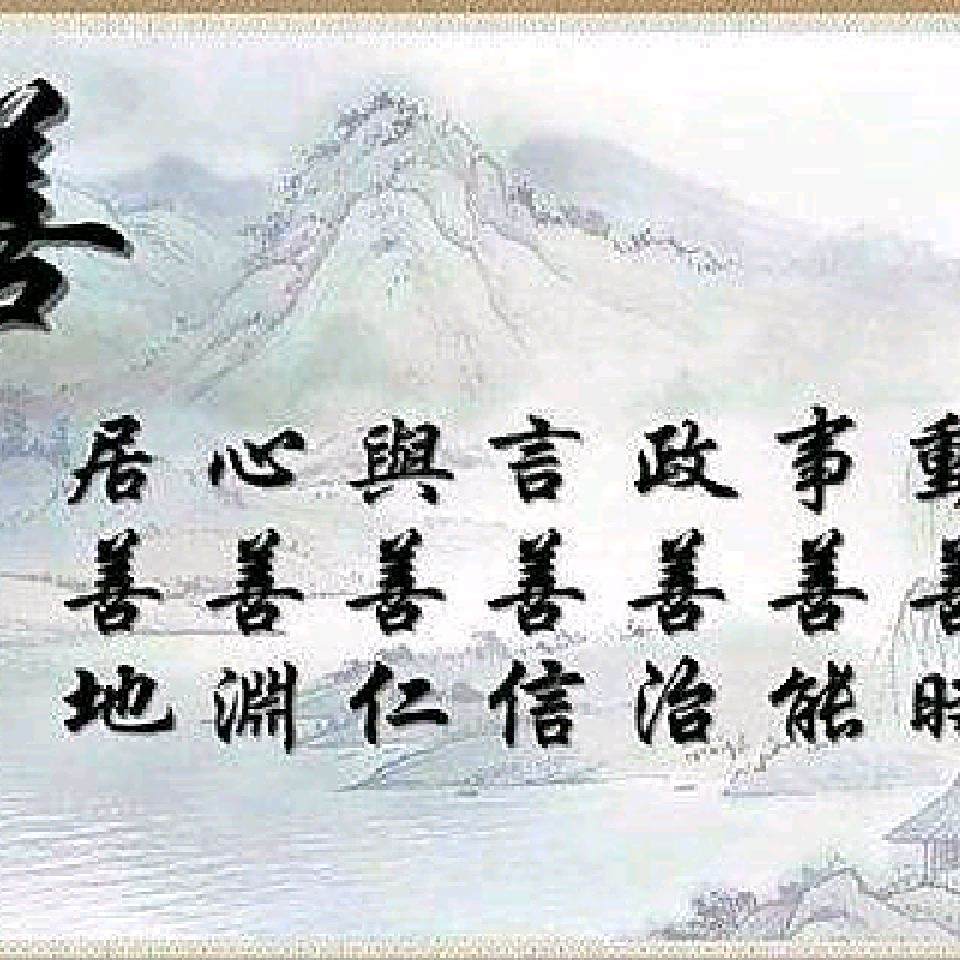 善
居善地
心善淵
與善仁
言善信
政善治
事善能
動善時